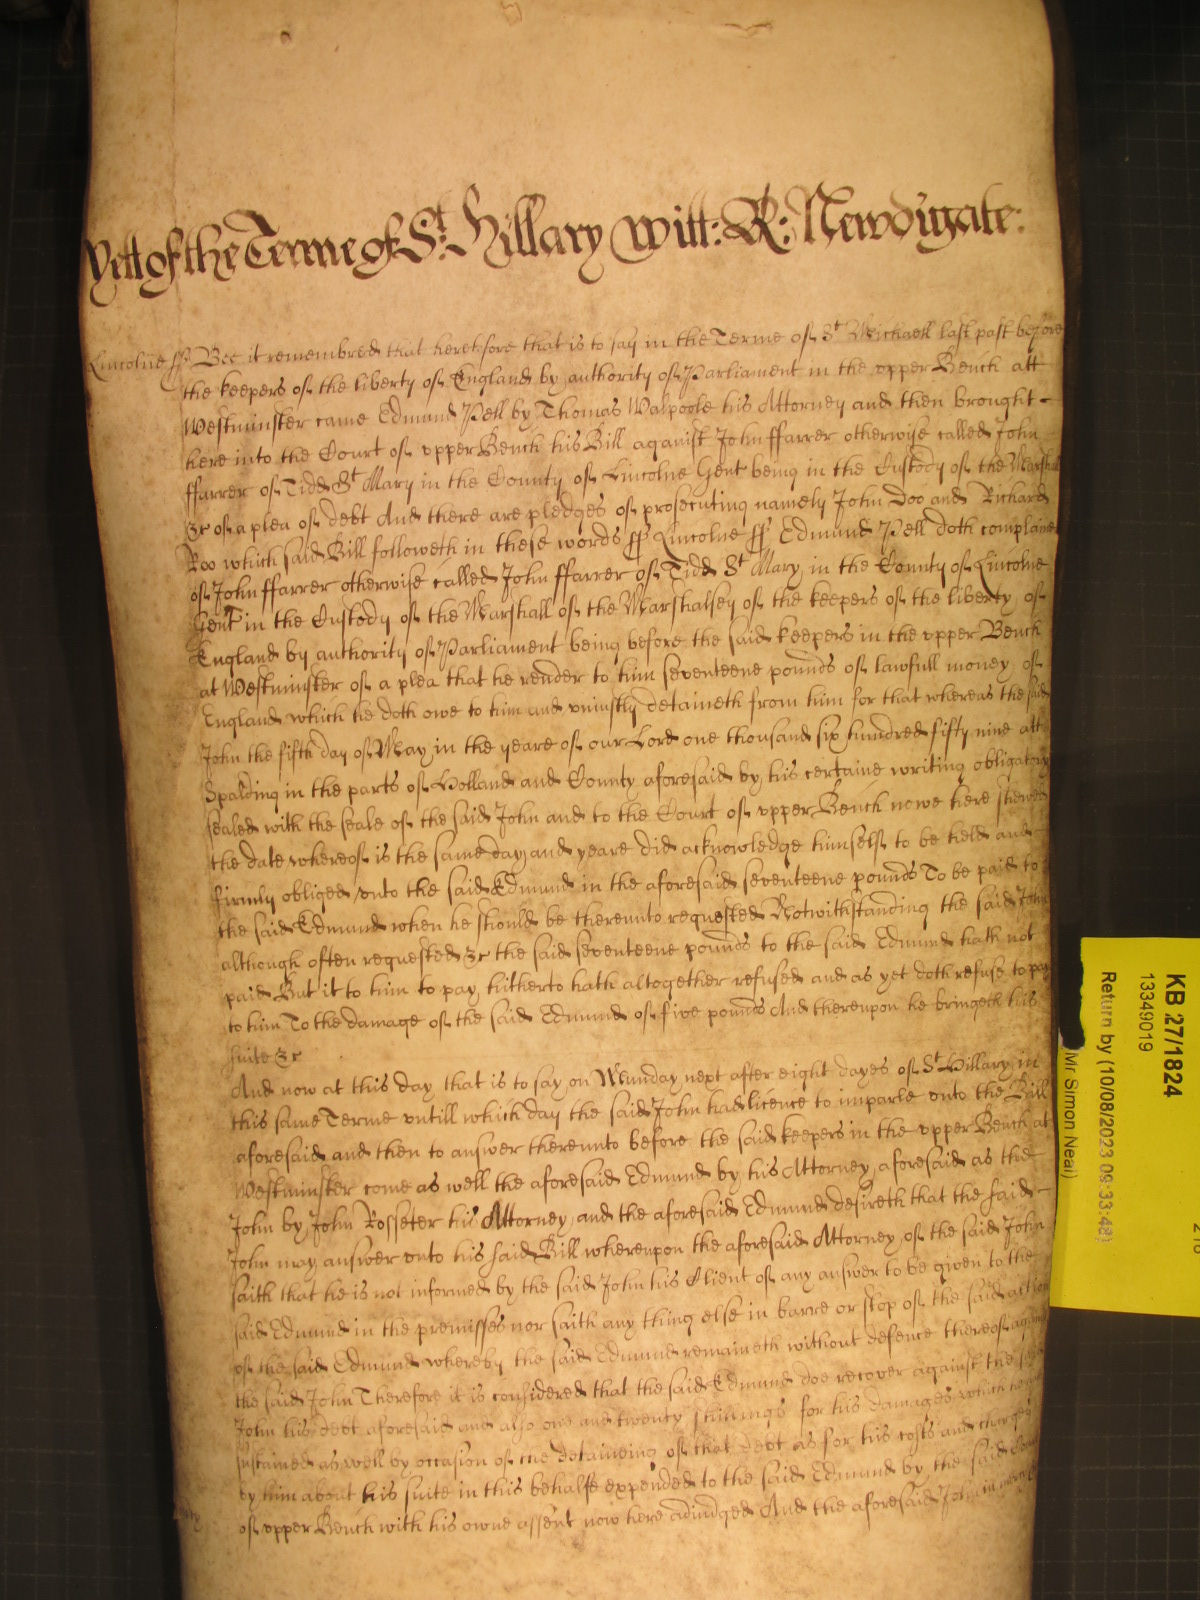 Yett of the Terme of St. Hillary Witt: R: Newdigate:
Lincolne ss Bee it remembred that heretofore that is to say in the Terme of St Michaell last past before
the keepers of the liberty of England by authority of Parliament in the vpper Bench att
Westminster came Edmund Pell by Thomas Walpoole his Attorney and then brought
here into the Court of vpper Bench his Bill against John ffarrer otherwise called John
ffarrer of Tidd St Mary in the County of Lincolne Gent being in the Custody of the Marshall
&c of a plea of debt And there are pledges of prosecuting namely John Doo and Richard
Roo which said Bill followeth in these words ss Lincolne ss Edmund Pell doth complaine
of John ffarrer otherwise called John ffarrer of Tidd St Mary in the County of Lincolne
Gent in the Custody of the Marshall of the Marshalsey of the keepers of the liberty of
England by authority of Parliament being before the said keepers in the vpper Bench
at Westminster of a plea that he render to him seventeene pounds of lawfull money of
England which he doth owe to him and vniustly detaineth from him for that whereas the said
John the fifth day of May in the yeare of our Lord one thousand six hundred fifty nine att
Spalding in the parts of Holland and County aforesaid by his certaine writing obligatory
sealed with the seale of the said John and to the Court of vpper Bench nowe here shewed
the date whereof is the same day and yeare did acknowledge himself to be held and
firmly obliged vnto the said Edmund in the aforesaid seventeene pounds To be paid to
the said Edmund when he should be thereunto requested Notwithstanding the said John
although often requested &c the said seventeene pounds to the said Edmund hath not
paid But it to him to pay hitherto hath altogether refused and as yet doth refuse to pay
to him To the damage of the said Edmund of five pounds And thereupon he bringeth his
suite &c
And now at this day that is to say on Munday next after eight dayes of St Hillary in
this same Terme vntill which day the said John had licence to imparle vnto the Bill
aforesaid and then to answer thereunto before the said keepers in the vpper Bench at
Westminster come as well the aforesaid Edmund by his Attorney aforesaid as the
John by John Rosseter his Attorney and the aforesaid Edmund desireth that the said
John may answer vnto his said Bill whereupon the aforesaid Attorney of the said John
saith that he is not informed by the said John his Client of any answer to be given to the
said Edmund in the premisses nor saith any thing else in barre or stop of the said action
of the said Edmund whereby the said Edmund remaineth without defence thereof against
the said John Therefore it is considered that the said Edmund doe recover against the said
John his debt aforesaid and also one and twenty shillings for his damages which
sustained as well by occasion of the detaineing of that debt as for his costs and charges
by him about his suite in this behalfe expended to the said Edmund by the said Court
of vpper Bench with his owne assent now here adiudged And the aforesaid John in
KB 27/1824
13349019
Return by (10/08/2023 09:33:48)
Mr Simon Neal)